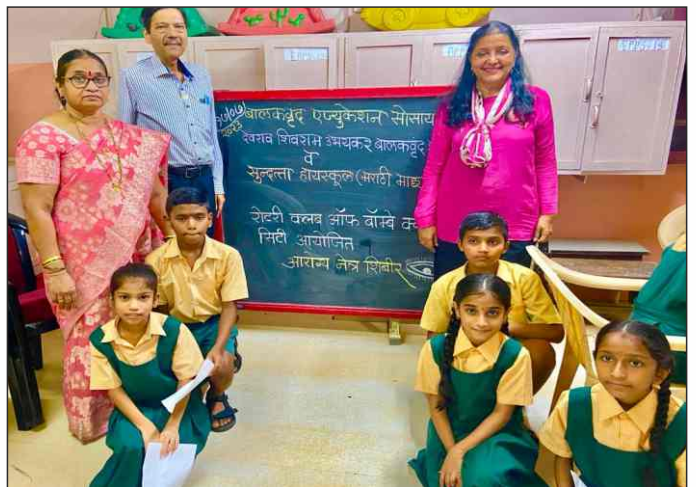 बालकवृंद एज्युकेशन सोसाय
देवराव शिवराम उभयकर बालकवृंद
व
सुनदत्ता हायस्कूल (मराठी माध्य
रोटरी क्लब ऑफ बॉम्बे क्व
सिटी आयोजित
आरोग्य नेत्र शिबीर